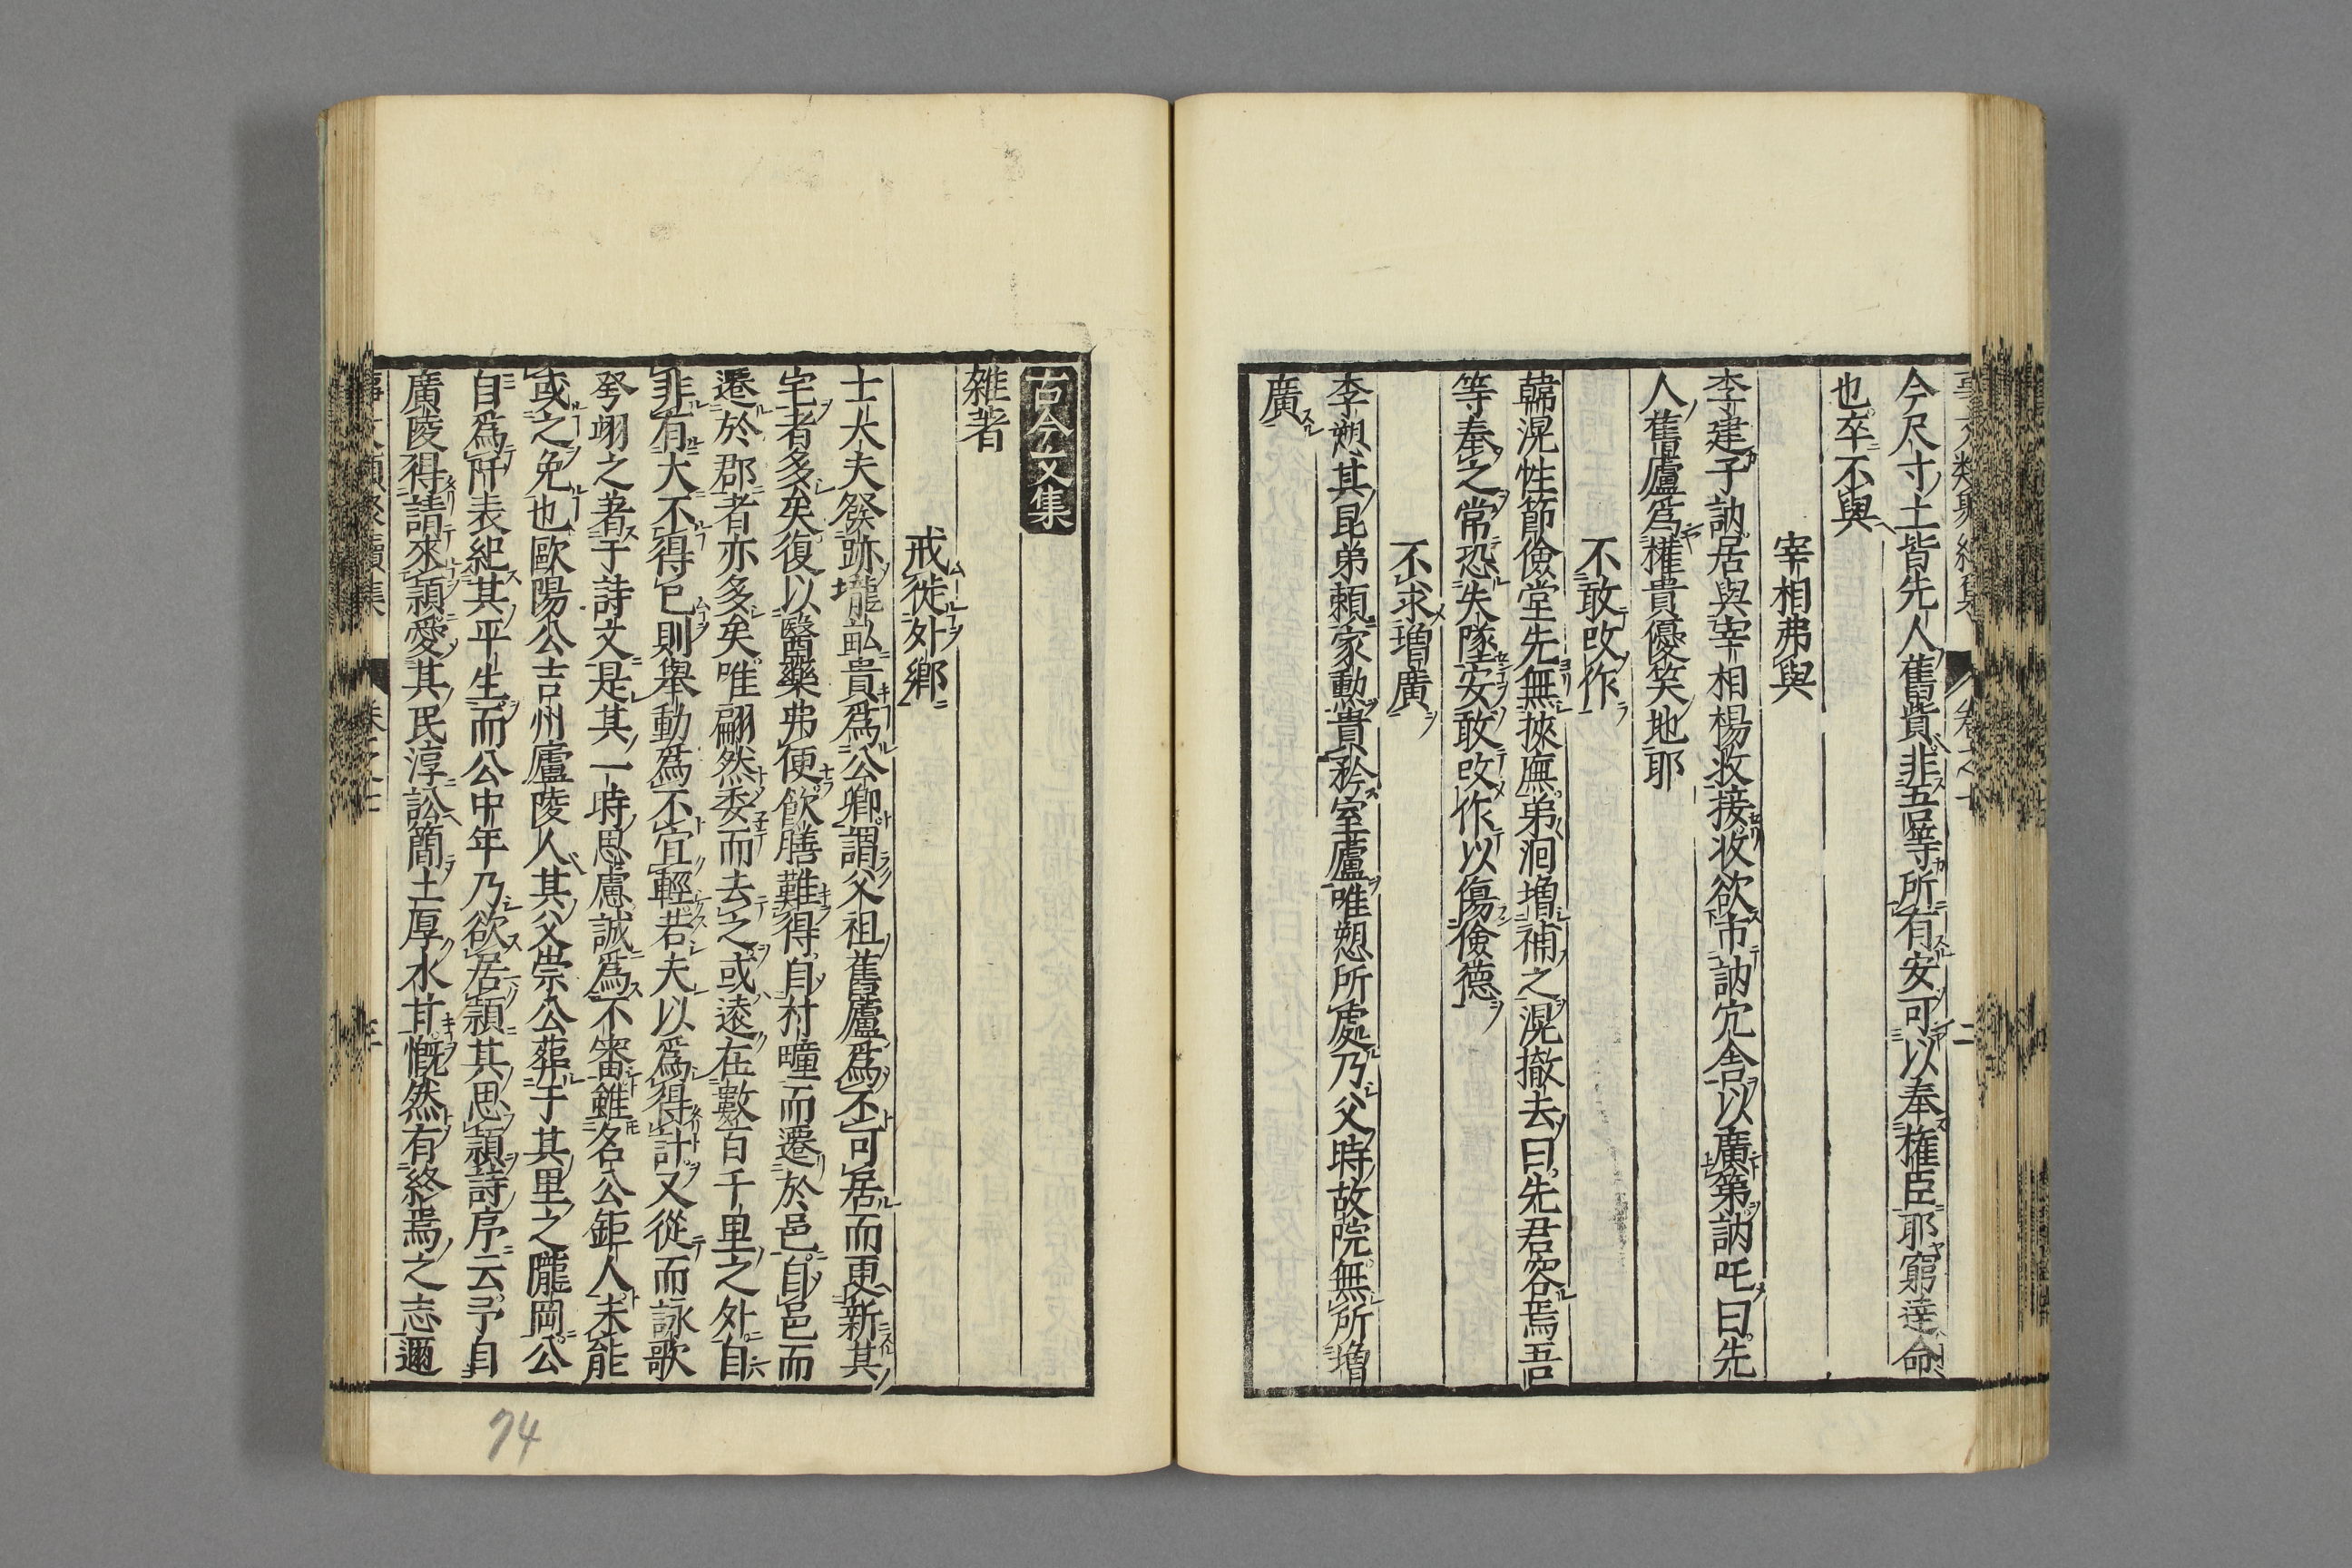 今尺寸土皆先人舊貲非吾等所有安可以奉權臣耶窮達命
也卒不與
宰相弗與
李建子訥居與宰相楊收接收欲市訥宂舍以廣第訥叱曰先
人舊廬爲權貴優笑地耶
不敢改作
韓滉性節儉堂先無挾廡弟洄增補之滉撤去曰先君容焉吾
等奉之常恐失墜安敢改作以傷儉德
不求增廣
李愬其昆弟賴家勲貴矜室廬唯愬所處乃父時故院無所增
廣
古今文集
雜著
戒徙外鄉
士大夫發跡壠畝貴爲公卿謂父祖舊廬爲不可居而更新其
宅者多矣復以醫藥弗便飲膳難得自村疃而遷於邑自邑而
遷於郡者亦多矣唯翩然委而去之或遠在數百千里之外自
非有大不得已則舉動爲不宜輕若夫以爲得計又從而詠歌
夸詡之著于詩文是其一時思慮誠爲不審雖名公鉅人未能
或之免也歐陽公吉州廬陵人其父崇公葬于其里之隴岡公
自爲阡表紀其平生而公中年乃欲居潁其思潁詩序云予自
廣陵得請來潁愛其民淳訟簡土厚水甘慨然有終焉之志邇
74